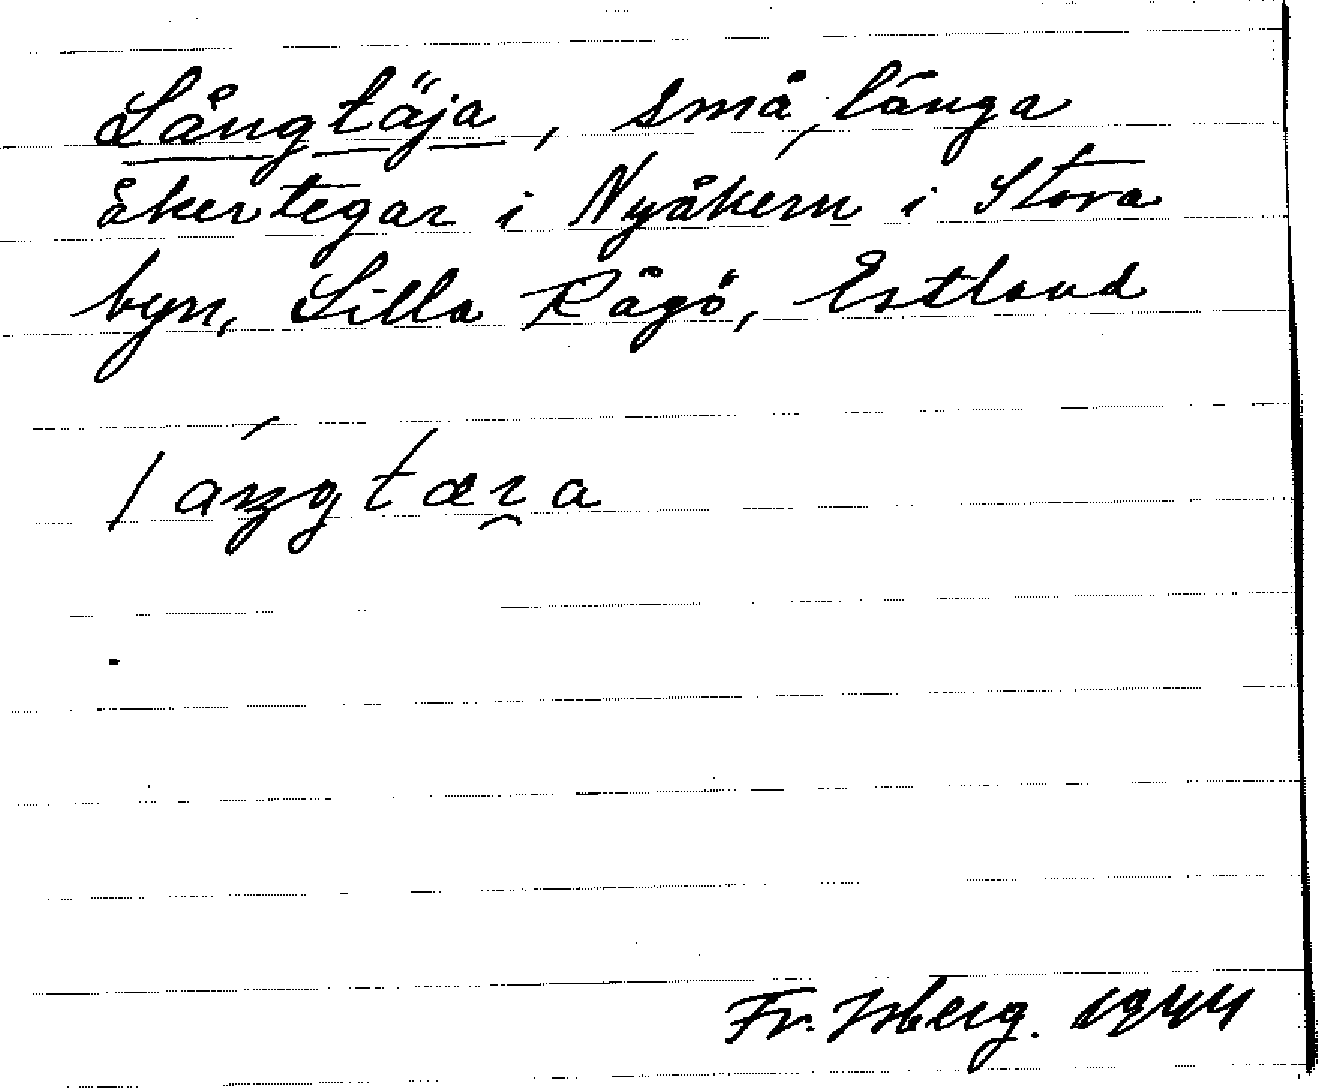 Långtäja, små, långa
åkertegar i Nyåkern i Stora
byn, Lilla Rågö, Estland
Fr. Isberg. 1944